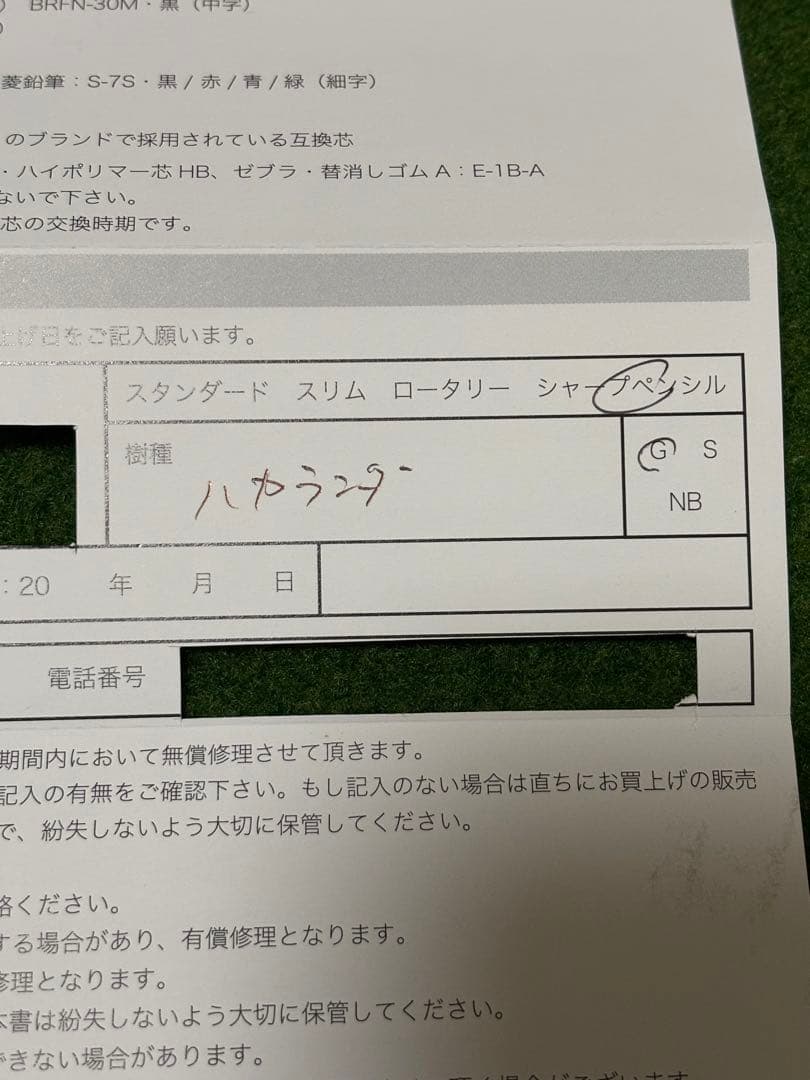 BRFN-30M・黒（中字）
菱鉛筆：S-7S・黒 / 赤 / 青 / 緑（細字）
のブランドで採用されている互換芯
・ハイポリマー芯 HB、ゼブラ・替消しゴム A：E-1B-A
ないで下さい。
芯の交換時期です。
上げ日をご記入願います。
スタンダード スリム ロータリー シャープペンシル
樹種
ハカランダー
G S
NB
：20 年 月 日
電話番号
期間内において無償修理させて頂きます。
記入の有無をご確認下さい。もし記入のない場合は直ちにお買上げの販売
で、紛失しないよう大切に保管してください。
絡ください。
する場合があり、有償修理となります。
修理となります。
本書は紛失しないよう大切に保管してください。
できない場合があります。